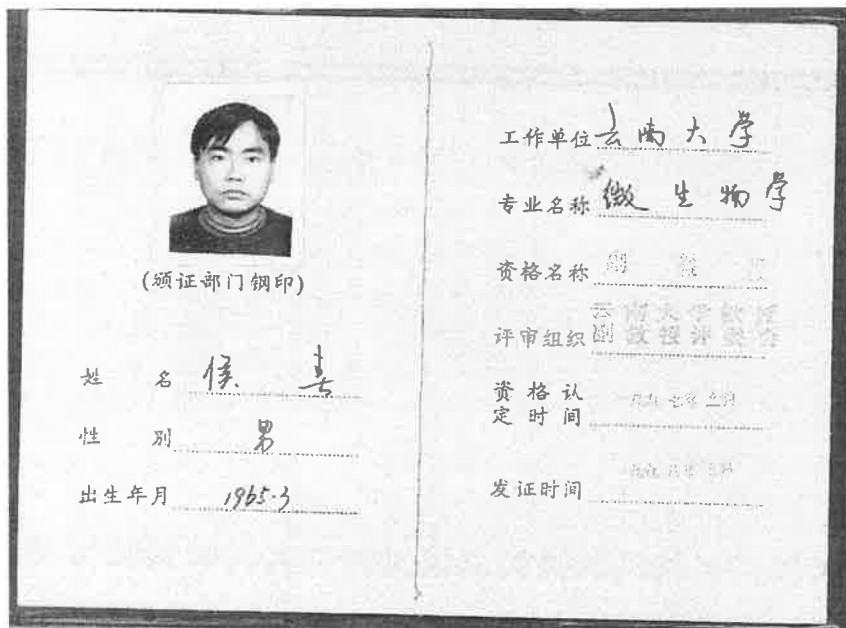 (颁证部门钢印)
姓 名 侯
性 别 男
出生年月 1965.3
工作单位 云南大学
专业名称 微生物学
资格名称 副 教 授
评审组织 云南大学教师
副教授评委会
资格认
定时间
发证时间